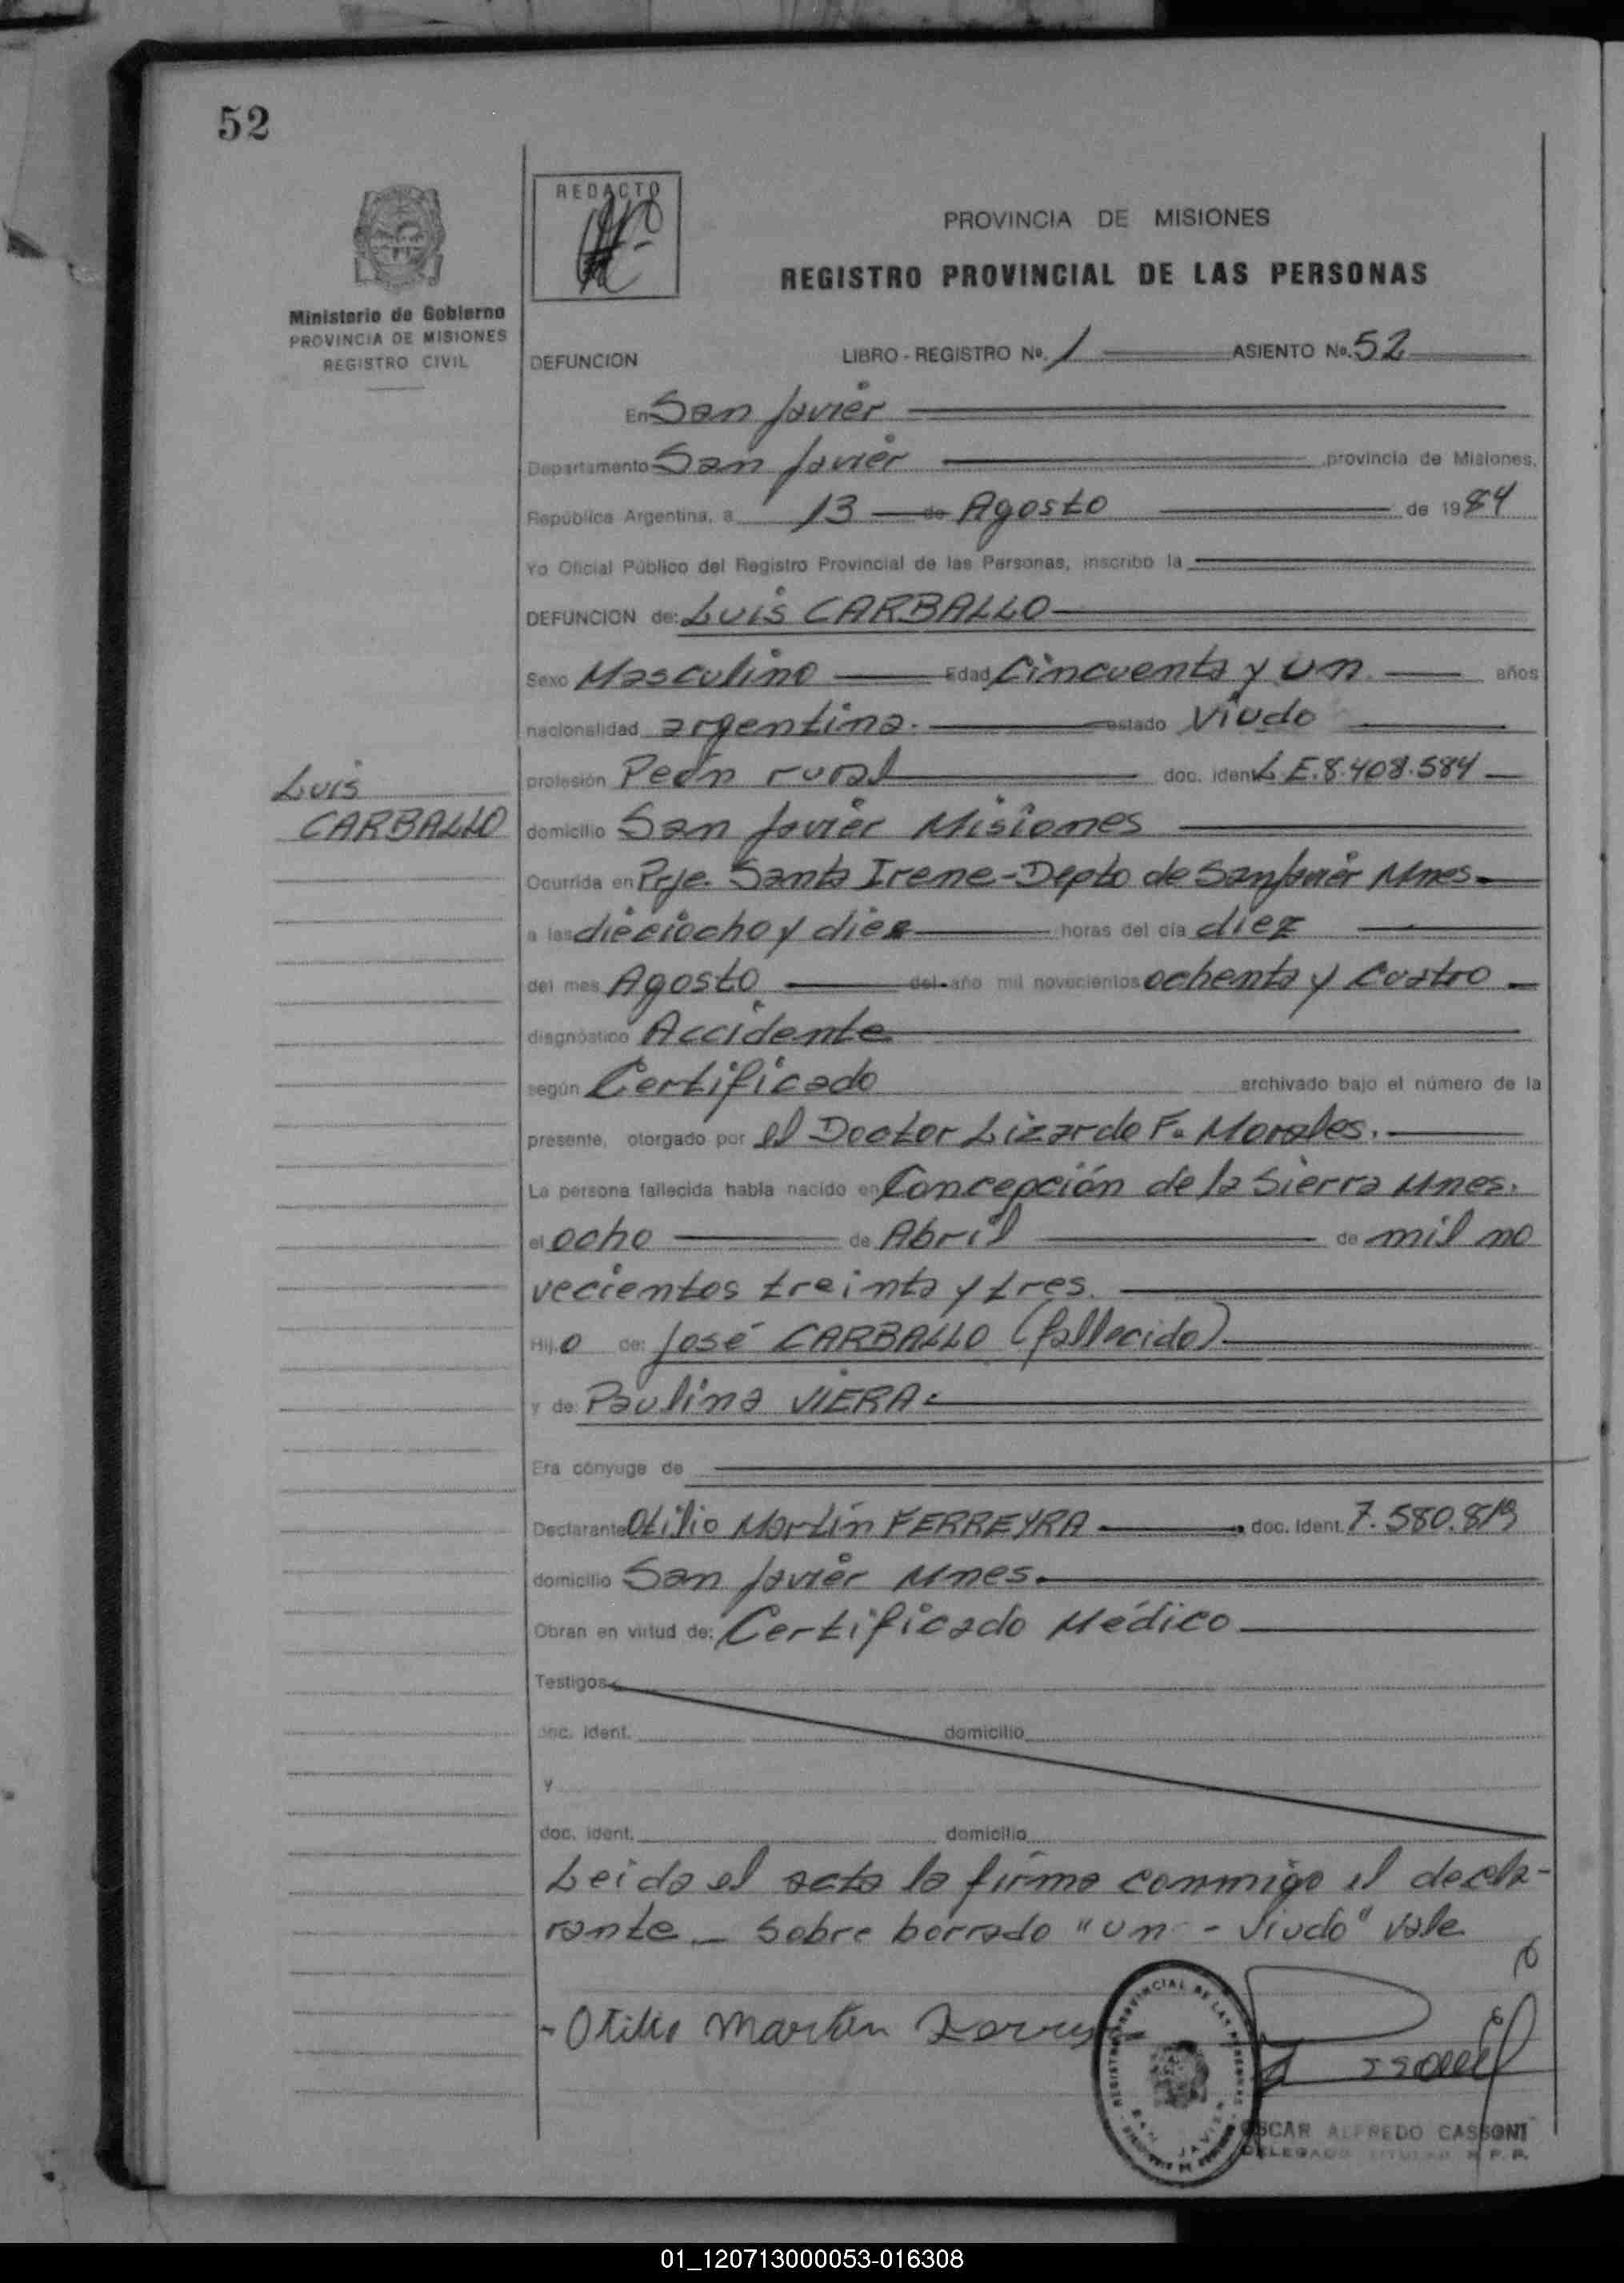 52
REDACTO
PROVINCIA DE MISIONES
REGISTRO PROVINCIAL DE LAS PERSONAS
Ministerio de Gobierno
PROVINCIA DE MISIONES
REGISTRO CIVIL
DEFUNCION LIBRO - REGISTRO Nº. 1 ASIENTO No. 52
En San Javier
Departamento San Javier provincia de Misiones,
República Argentina, a 13 de Agosto de 1984
Yo Oficial Público del Registro Provincial de las Personas, inscribo la
DEFUNCION de: Luis CARBALLO
Sexo Masculino Edad Cincuenta y un años
nacionalidad argentina. estado Viudo
Luis
CARBALLO
profesión Peón rural doc. ident. L.E. 8.408.584
domicilio San Javier Misiones
Ocurrida en Prje. Santa Irene - Depto de San Javier Mnes.
a las dieciocho y diez horas del día diez
del mes Agosto del año mil novecientos ochenta y cuatro
diagnóstico Accidente
según Certificado archivado bajo el número de la
presente, otorgado por el Doctor Lizardo F. Morales.
La persona fallecida había nacido en Concepción de la Sierra Mnes.
el ocho de Abril de mil no
vecientos treinta y tres.
Hijo de: José CARBALLO (fallecido)
y de: Paulina VIERA.
Era cónyuge de
Declarante Otilio Martín FERREYRA doc. ident. 7.580.819
domicilio San Javier Mnes.
Obran en virtud de: Certificado Médico
Testigos
doc. ident. domicilio
y
doc. ident. domicilio
Leida el acta la firma conmigo el decla-
rante _ Sobre borrado "un - viudo" vale
- Otilio Martin Ferrey
REGISTRO PROVINCIAL DE LAS PERSONAS
SAN JAVIER
OSCAR ALFREDO CASSONI
DELEGADO TITULAR R. P. P.
01_120713000053-016308